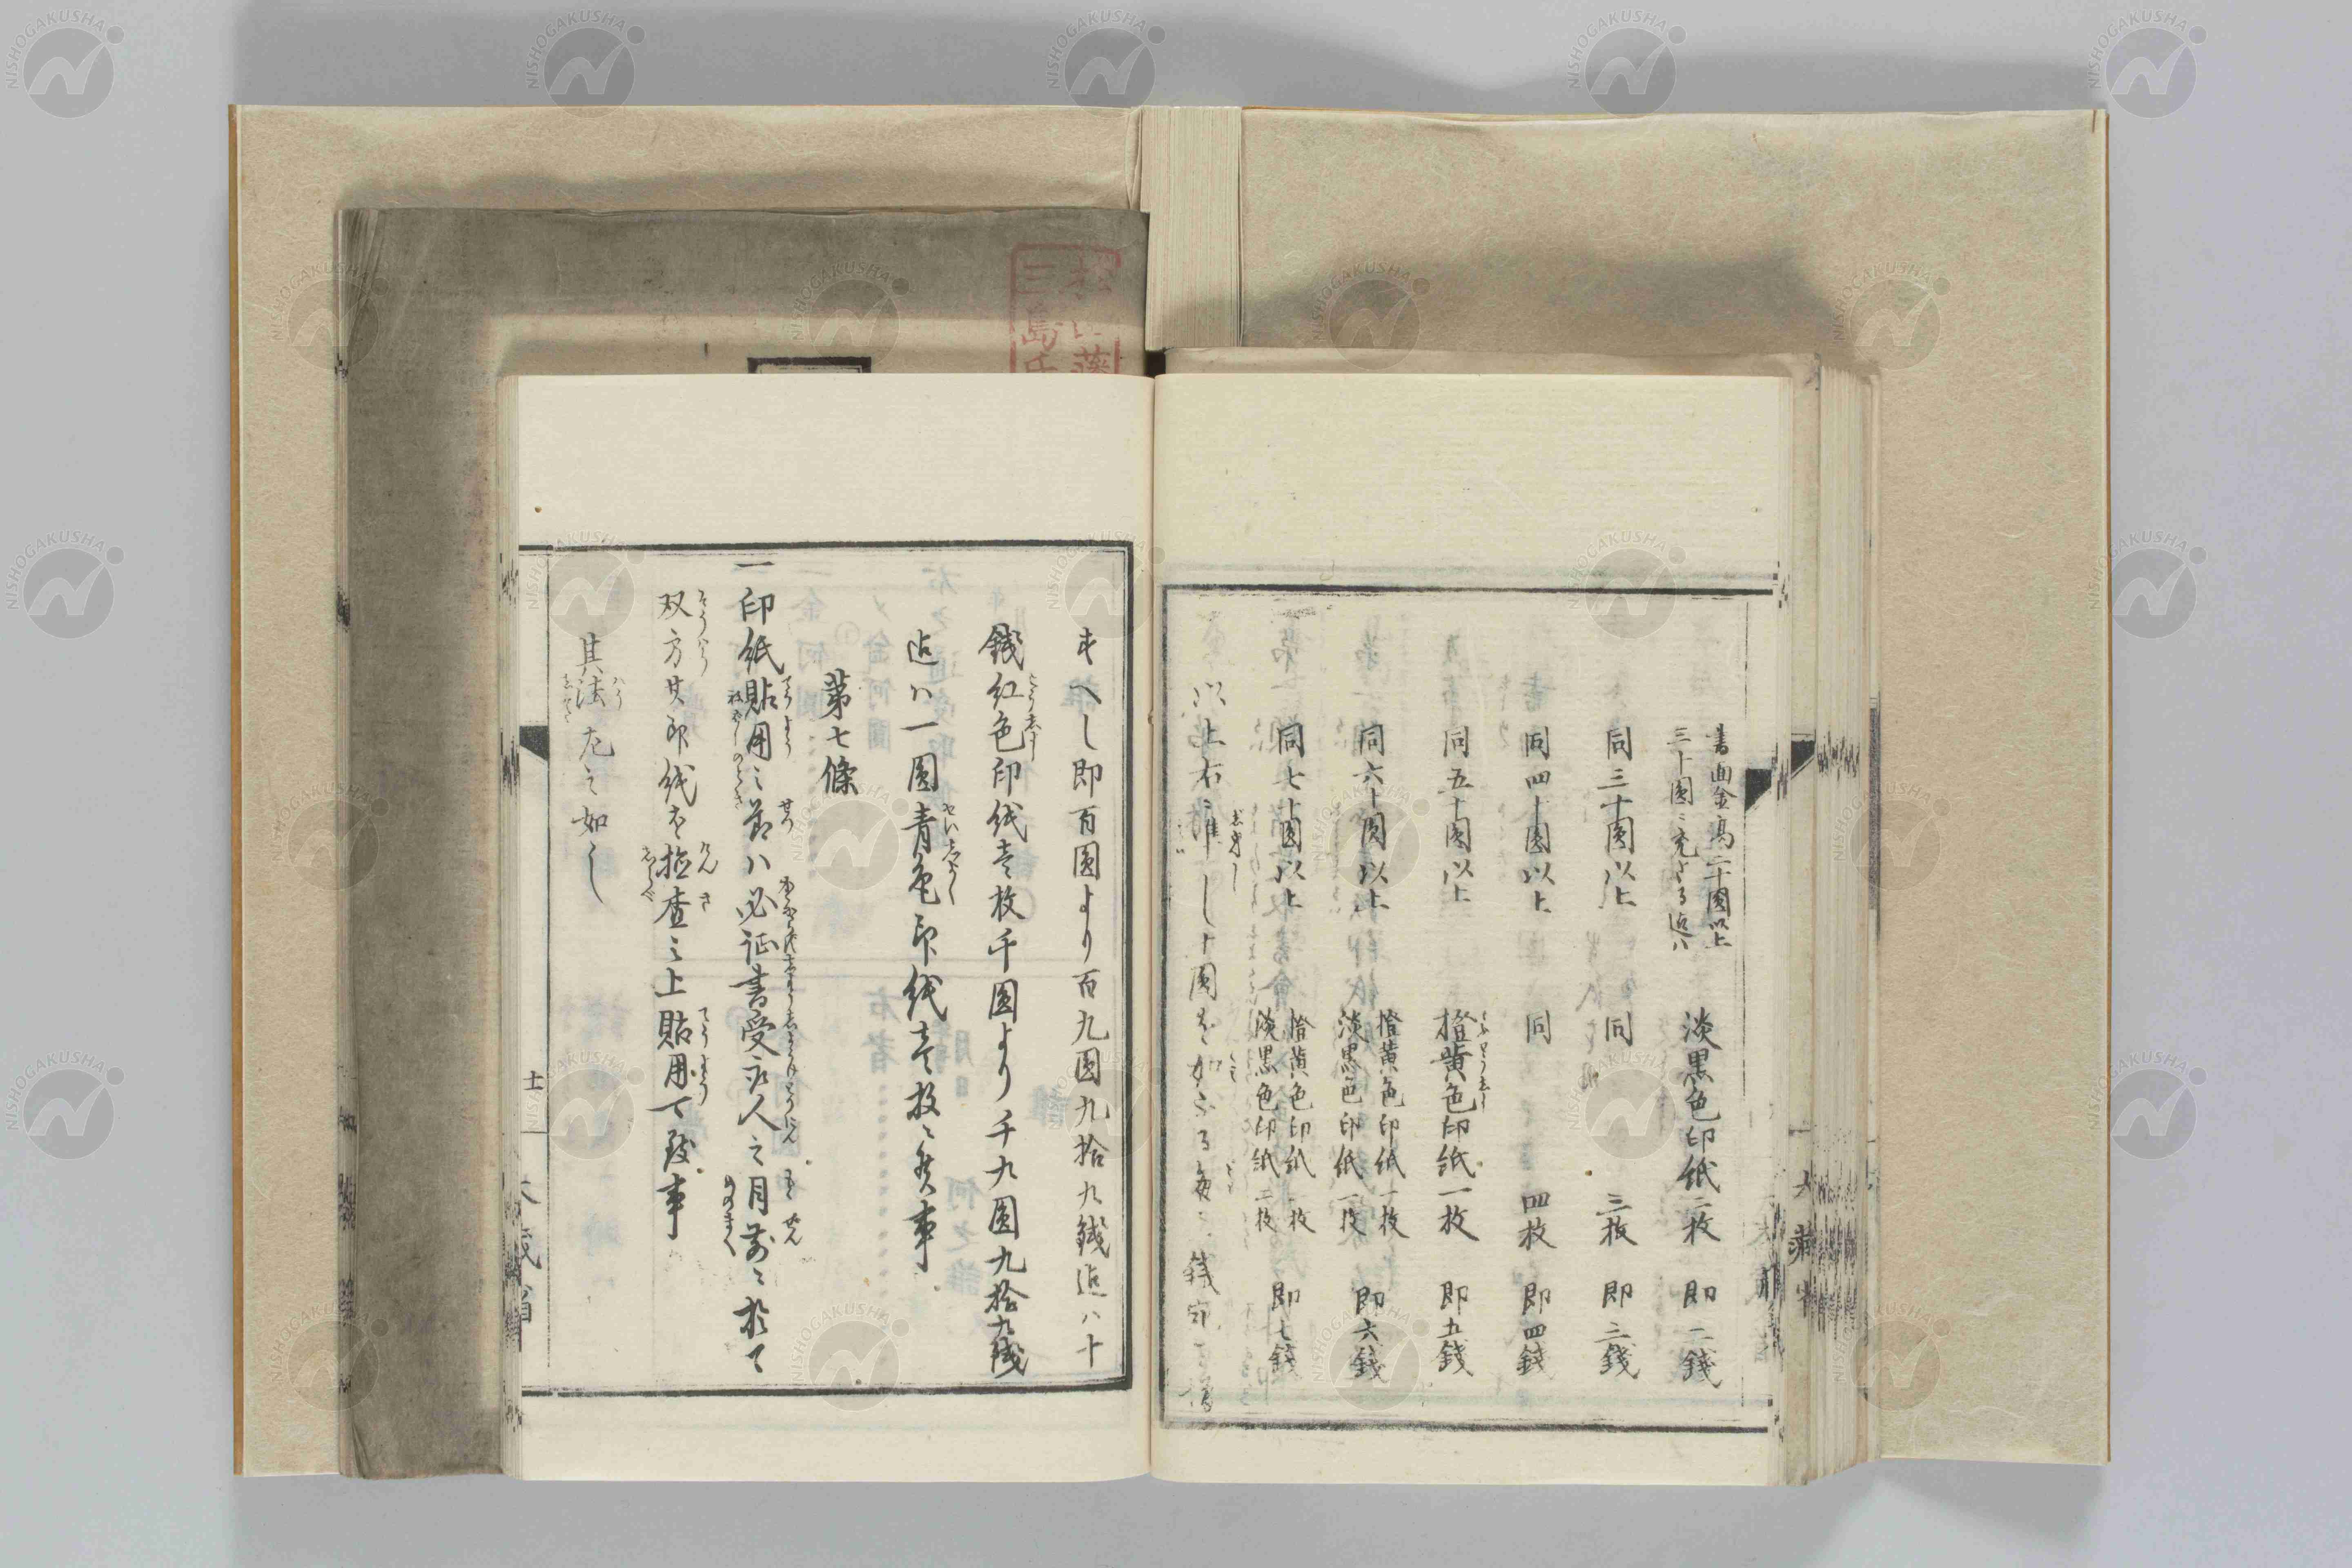 書面金高二十圓以上
三十圓ニ充さる迄ハ
淡黒色印紙二枚 即二錢
同三十圓以上 同 三枚 即三錢
同四十圓以上 同 四枚 即四錢
同五十圓以上 橙黄色印紙一枚 即五錢
同六十圓以上 橙黄色印紙一枚
淡黒色印紙一枚 即六錢
同七十圓以上 橙黄色印紙一枚
淡黒色印紙二枚 即七錢
以上右ニ準し十圓を加ふる毎ニ一錢印
大藏省
すへし即百圓より百九圓九拾九錢迄ハ十
錢紅色印紙壱枚千圓より千九圓九拾九錢
迄ハ一圓青色印紙壱枚之事
第七條
一印紙貼用之節ハ必证書受取人之目前ニ於て
双方其印紙を撿査之上貼用可致事
其法左之如し
十一
大藏省
三島氏
NISHOGAKUSHA